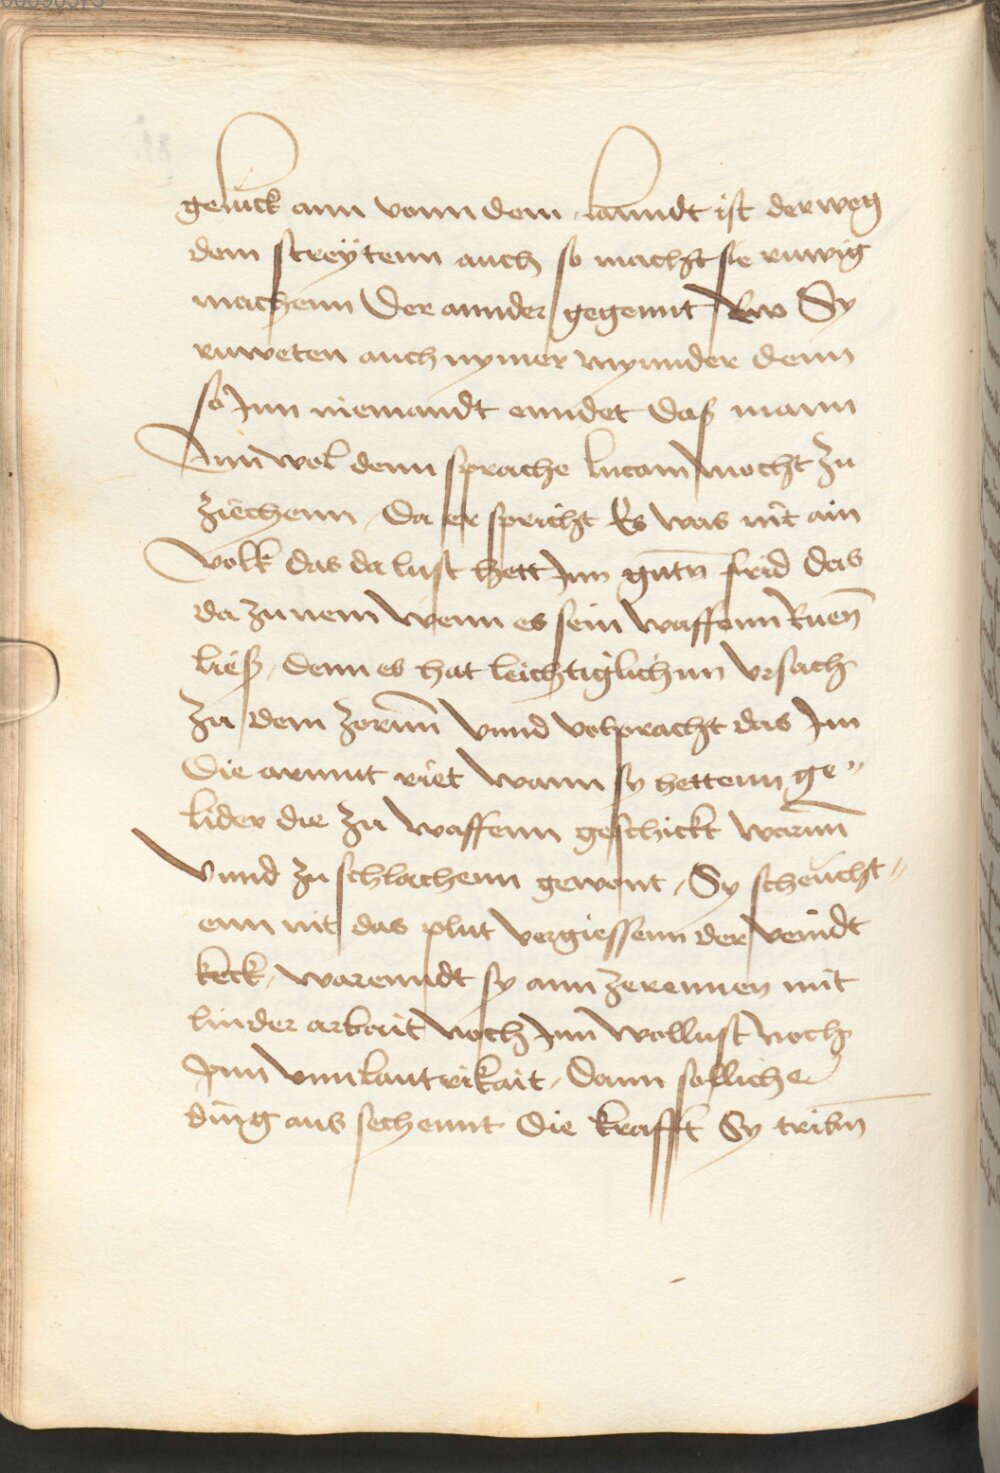 geluck ann vonn dem lanndt ist der weg
dem streÿtenn auch so macht sie ruwig
machenn Der annder gegennt Rw Sy
ruweten auch nymer mynnder denn
so Jnn niemandt enndet das mann
Jnn wol denn sprache lucam mocht zu
ziechenn Da er spricht Es was nit ain
volk das da lust hett Jnn gutn̄ frid das
da zu nem wenn es sein waffenn Ruen̄
lies, denn es hat leichtiglichnn vrsach
zu dem zorn̄n vnnd volpracht das Jm
die armut riet wann sy hettenn ge„
lider die zu waffenn geschickt warn̄n
vnnd zu schlachenn gewont, Sy scheücht„
enn nit das plut vergiessenn der veindt
keck, warenndt sy ann ze rennen mit
linder arbait noch Jnn wollust noch
Jnn vnnlautrikait, Dann solliche
ding aus sechennt die krafft Sy tribn̄